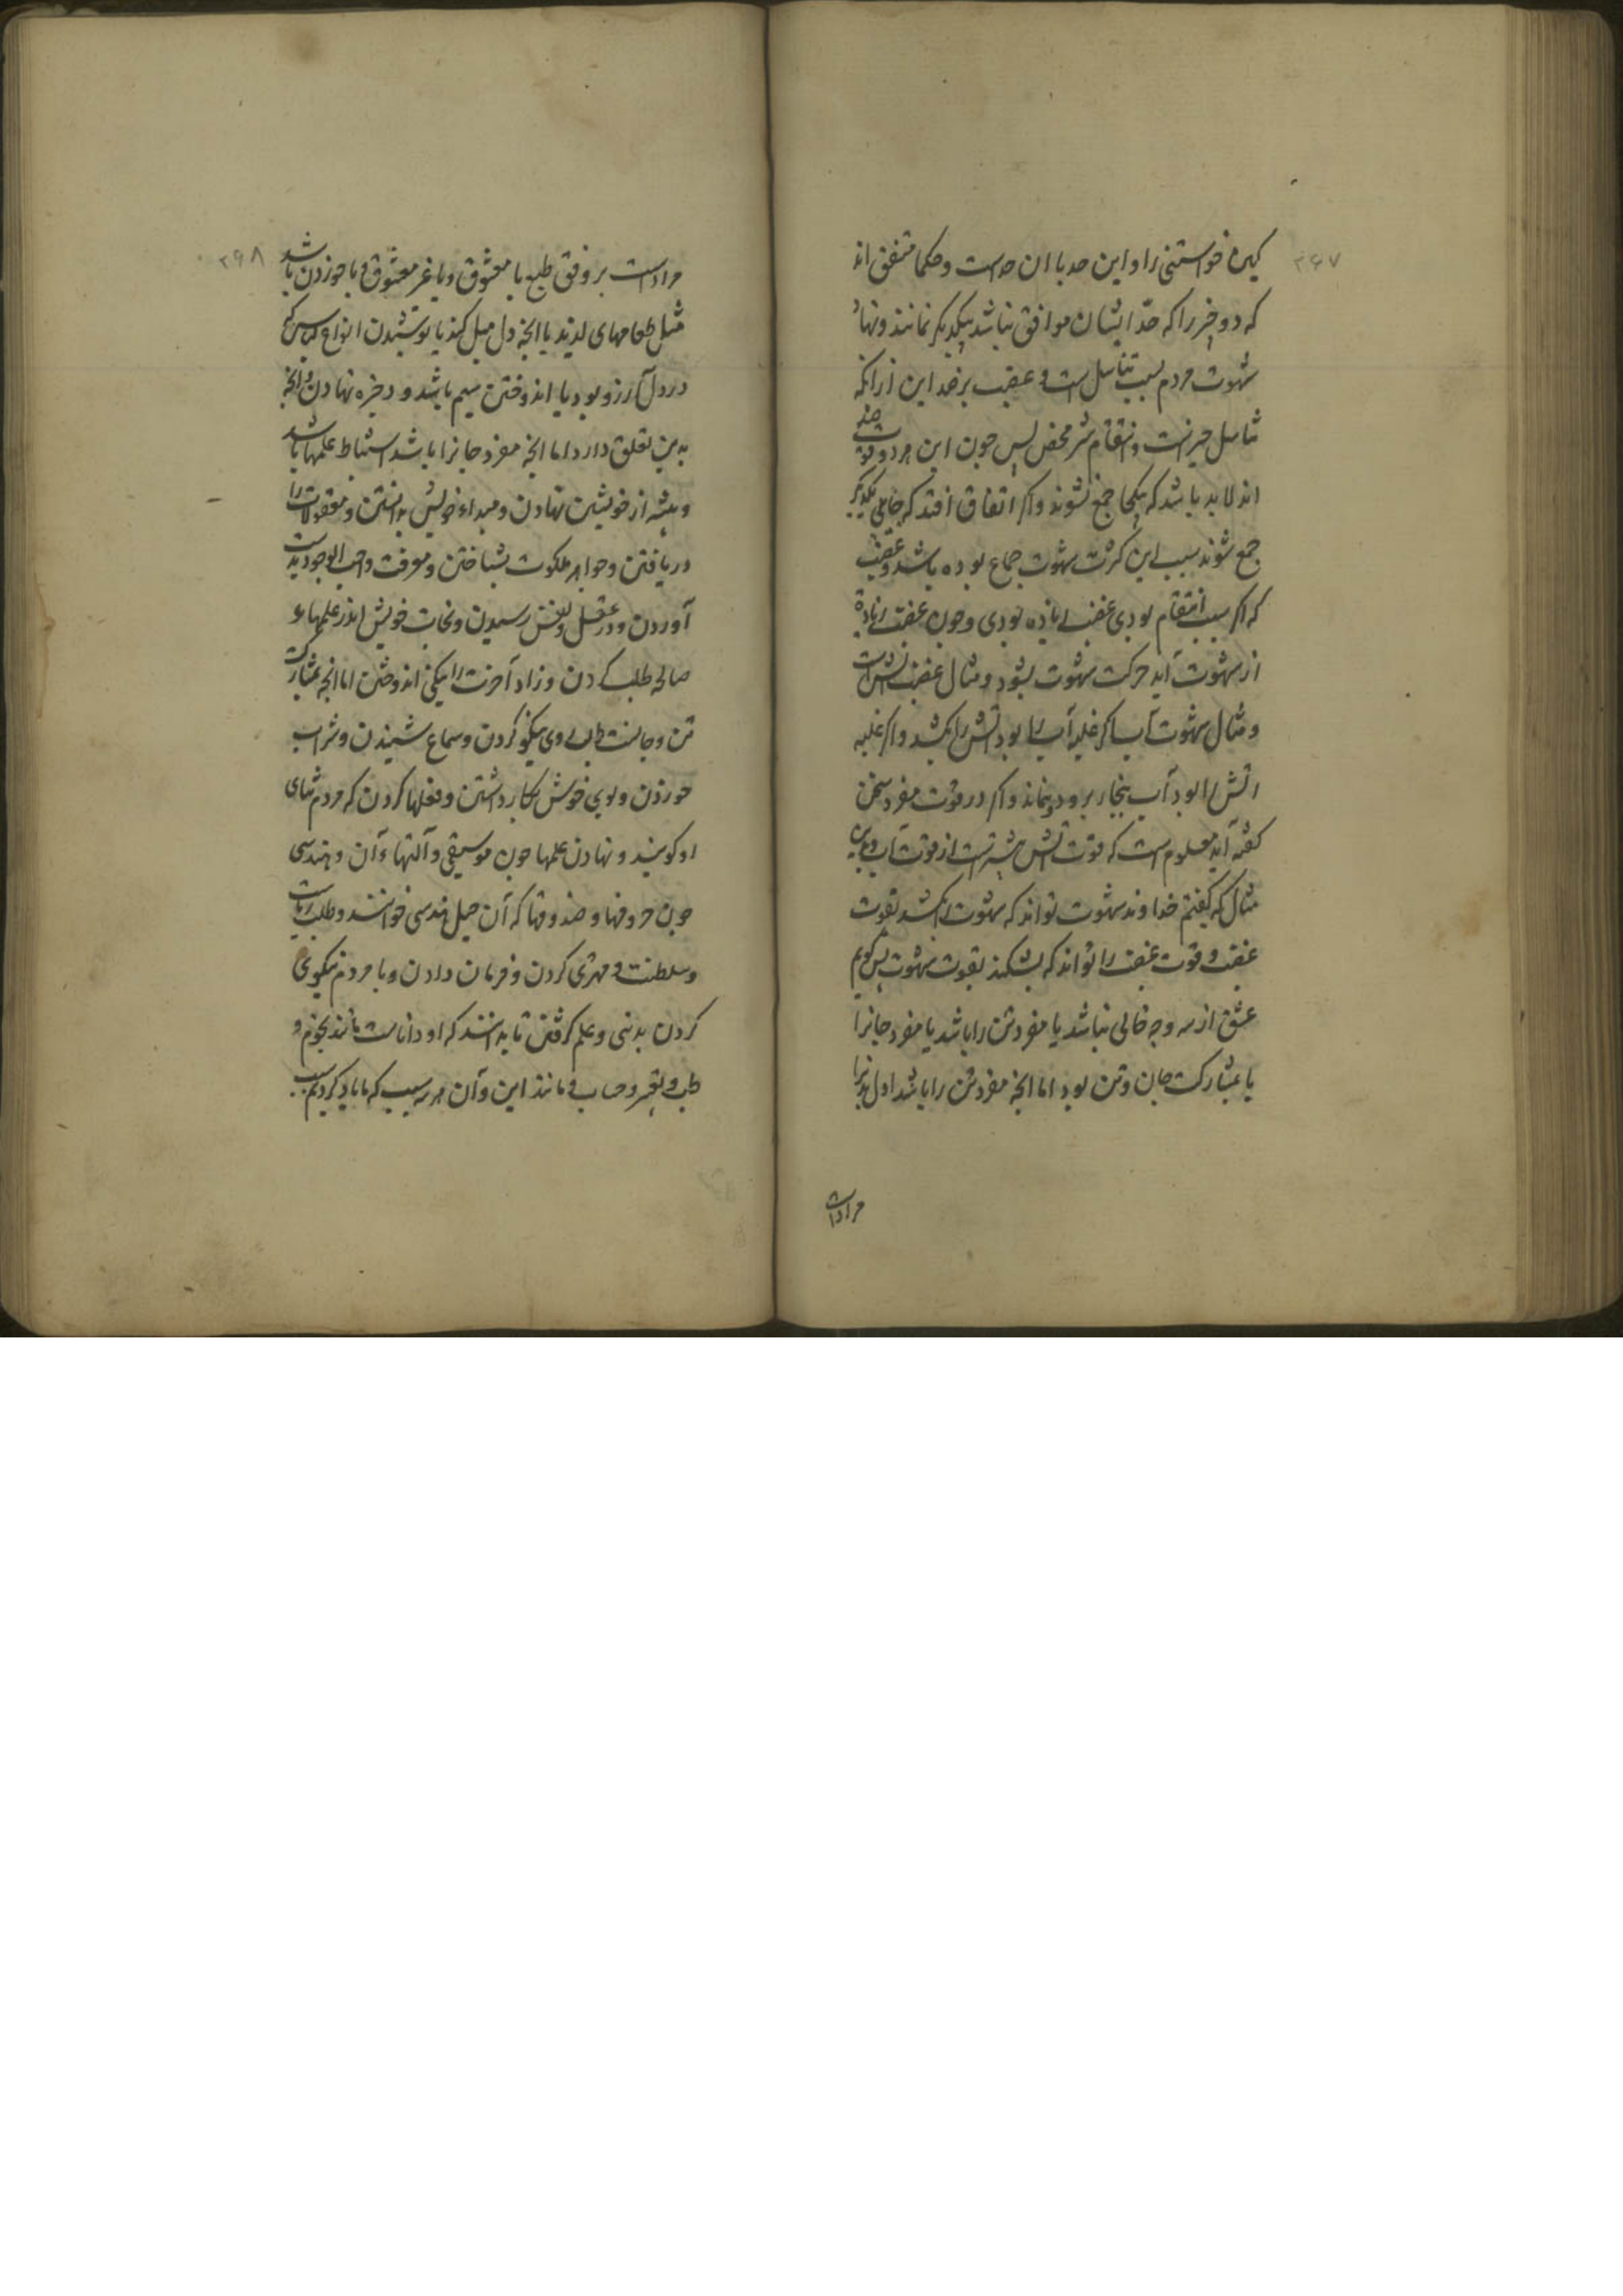 ۳۶۷
کیرد خواستنی را و این حد با ان حداست و حکما متفق اند
که دو چیز را که حدّ ایشان موافق نباشد بیکدیکر نمانند و نهاد
شهوت مردم بسبب تناسل است و غضب بر ضد این ازانکه
تناسل خیرست و انتقام شر محض پس چون این هر دو قوت ضد
اند لابد باشد که بیکجا جمع نشوند و اکر اتفاق افتد که جایی بیکدیکر
جمع شوند سبب این کثرت شهوت جماع بوده باشد و غضب
که اکر سبب انتقام بودی غضب زیاده بودی و چون غضب زیادة
از شهوت آید حرکت شهوت بشود و مثال غضب آتش است
و مثال شهوت آب اکر غلبه آب را بود آتش را بکشد و اکر غلبه
اتش را بود آب بخار برود و نماند و اکر در قوت مفرد سخن
کفته آید معلوم است که قوت آتش بیشترست از قوت آب و بدین
مثال که کفتم خداوند شهوت تواند که شهوت را بکشد بقوت
غضب و قوت غضب را تواند که بشکند بقوت شهوت پس کویم
عشق از سه وجه خالی نباشد یا مفرد تن را باشد یا مفرد جانرا
یا بمشارکت جان و تن بود اما انچه مفرد تن را باشد اول بدنرا
مراداست
۳۶۸
مراداست بر وفق طبع با معشوق و با غیر معشوق و یا خوردن باشد
مثل طعامهای لذیذ یا انچه دل میل کند یا پوشیدن انواع لباس که
در دل آرزو بود یا اندوختن سیم باشد و ذخیره نهادن و انچه
بدین تعلق دارد اما انچه مفرد جانرا باشد استنباط علمها باشد
و پیشه از خویشتن نهادن و مبداء خویش بدانستن و معقولات را
دریافتن و جواهر ملکوت بشناختن و معرفت واجب الوجود بدست
آوردن و در عقل و نفس رسیدن و نجات خویش اندر علمهاء
صالح طلب کردن و زاد آخرت را نیکی اندوختن اما انچه بمشارکت
تن و جانست طلب روی نیکو کردن و سماع شنیدن و شراب
خوردن و بوی خوش بکار داشتن و فعلها کردن که مردم ثنای
او کویند و نهادن علمها چون موسیقی و آلتهاء آن و هندسی
چون حروفها و صندوقها که آن حیل هندسی خوانند و طلب ریاست
و سلطنت و مهتری کردن و فرمان دادن و با مردم نیکوی
کردن بدنی و علم کرفتن تا بدانند که او داناست مانند نجوم و
طب و تعبیر و حساب و مانند این و آن هر سه سبب که ما یاد کردیم سبب